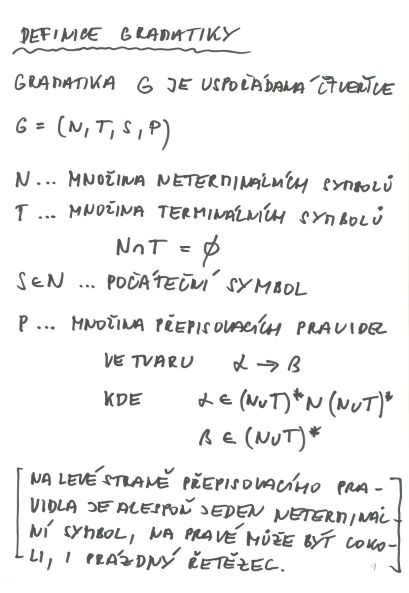 DEFINICE GRAMATIKY
GRAMATIKA G JE USPOŘÁDANÁ ČTVEŘICE
G = (N, T, S, P)
N ... MNOŽINA NETERMINÁLNÍCH SYMBOLŮ
T ... MNOŽINA TERMINÁLNÍCH SYMBOLŮ
N∩T = ∅
S∈N ... POČÁTEČNÍ SYMBOL
P ... MNOŽINA PŘEPISOVACÍCH PRAVIDEL
VE TVARU α → β
KDE α ∈ (N∪T)* N (N∪T)*
β ∈ (N∪T)*
[NA LEVÉ STRANĚ PŘEPISOVACÍHO PRA-
VIDLA JE ALESPOŇ JEDEN NETERMINÁL-
NÍ SYMBOL, NA PRAVÉ MŮŽE BÝT COKO-
LI, I PRÁZDNÝ ŘETĚZEC.]